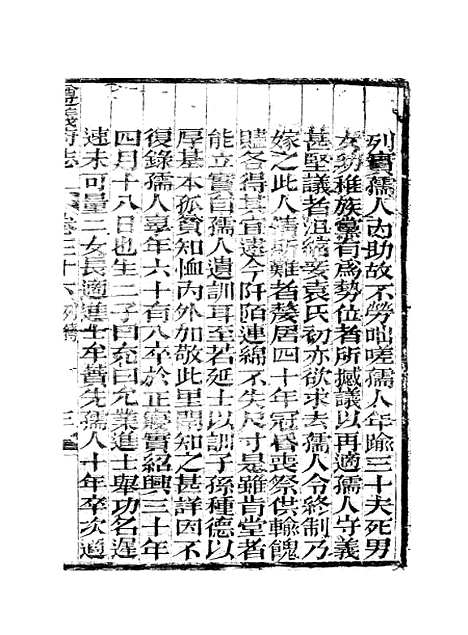 列實孺人內助故不勞咄嗟孺人年踰三十夫死男
女幼稚族黨有為勢位者所撼議以再適孺人守義
甚堅議者沮縮妾袁氏初亦欲求去孺人令終制乃
嫁之此人情所難者嫠居四十年冠昏喪祭供輸餽
贐各得其宜遠今阡陌連綿不失尺寸是雖肯堂者
能立實自孺人遺訓耳至若延士以訓子孫種德以
厚基本孤貧知恤內外加敬此里閭知之甚詳因不
復錄孺人享年六十有八卒於正寢實紹興三十年
四月十八日也生二子曰充曰允業進士舉功名遲
速未可量二女長適進士牟贊先孺人十年卒次適
遵義府志 卷三十六列傳 三